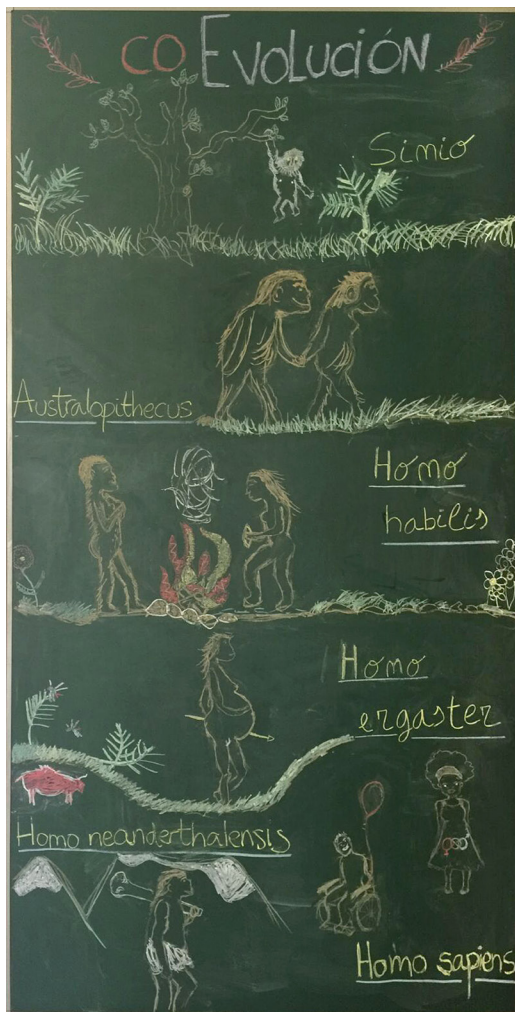 CO EVOLUCIÓN
Simio
AUStralopithecus
Homo
habilis
Homo
ergaster
OSD
Homo neanderthalensis
Homo sapiens